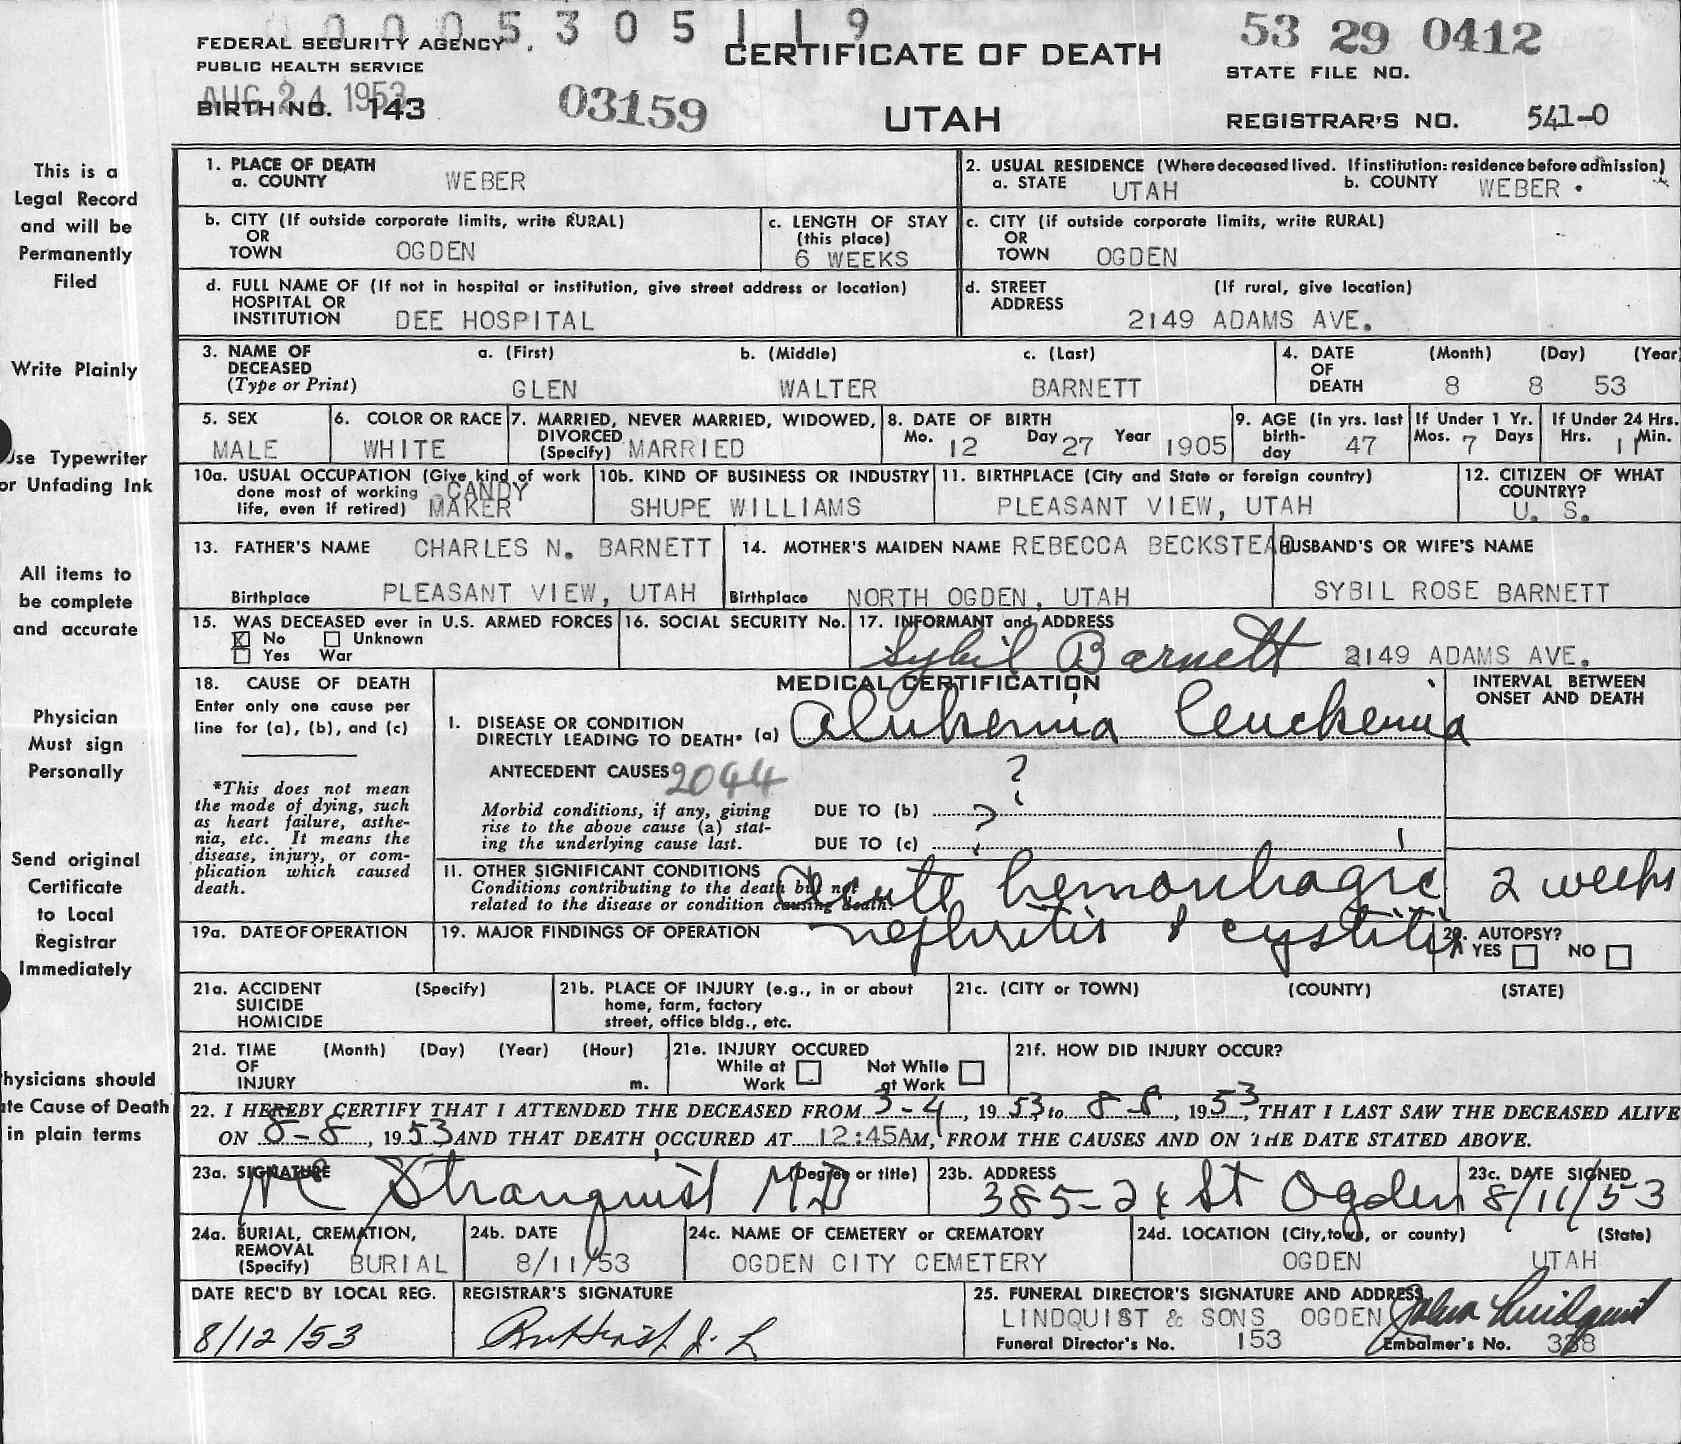 0 0 0 5 3 0 5 1 1 9
53 29 0412
FEDERAL SECURITY AGENCY
PUBLIC HEALTH SERVICE
CERTIFICATE OF DEATH
STATE FILE NO.
AUG 24 1953
BIRTH NO. 143
03159
UTAH
REGISTRAR'S NO. 541-0
This is a
Legal Record
and will be
Permanently
Filed
Write Plainly
Use Typewriter
or Unfading Ink
All items to
be complete
and accurate
Physician
Must sign
Personally
Send original
Certificate
to Local
Registrar
Immediately
hysicians should
ate Cause of Death
in plain terms
1. PLACE OF DEATH
a. COUNTY WEBER
2. USUAL RESIDENCE (Where deceased lived. If institution: residence before admission)
a. STATE UTAH b. COUNTY WEBER
b. CITY (If outside corporate limits, write RURAL)
OR
TOWN OGDEN
c. LENGTH OF STAY
(this place)
6 WEEKS
c. CITY (if outside corporate limits, write RURAL)
OR
TOWN OGDEN
d. FULL NAME OF (If not in hospital or institution, give street address or location)
HOSPITAL OR
INSTITUTION DEE HOSPITAL
d. STREET (If rural, give location)
ADDRESS
2149 ADAMS AVE.
3. NAME OF DECEASED (Type or Print)
a. (First) b. (Middle) c. (Last)
GLEN WALTER BARNETT
4. DATE OF DEATH (Month) (Day) (Year)
8 8 53
5. SEX
MALE
6. COLOR OR RACE
WHITE
7. MARRIED, NEVER MARRIED, WIDOWED,
DIVORCED
(Specify) MARRIED
8. DATE OF BIRTH
Mo. 12 Day 27 Year 1905
9. AGE (in yrs. last
birth-
day 47
If Under 1 Yr.
Mos. 7 Days
If Under 24 Hrs.
Hrs. 11 Min.
10a. USUAL OCCUPATION (Give kind of work
done most of working
life, even if retired)
CANDY
MAKER
10b. KIND OF BUSINESS OR INDUSTRY
SHUPE WILLIAMS
11. BIRTHPLACE (City and State or foreign country)
PLEASANT VIEW, UTAH
12. CITIZEN OF WHAT
COUNTRY?
U. S.
13. FATHER'S NAME CHARLES N. BARNETT
Birthplace PLEASANT VIEW, UTAH
14. MOTHER'S MAIDEN NAME REBECCA BECKSTEAD
Birthplace NORTH OGDEN, UTAH
HUSBAND'S OR WIFE'S NAME
SYBIL ROSE BARNETT
15. WAS DECEASED ever in U.S. ARMED FORCES
X No Unknown
Yes War
16. SOCIAL SECURITY No.
17. INFORMANT and ADDRESS
Sybil Barnett 2149 ADAMS AVE.
18. CAUSE OF DEATH
Enter only one cause per
line for (a), (b), and (c)
*This does not mean
the mode of dying, such
as heart failure, asthe-
nia, etc. It means the
disease, injury, or com-
plication which caused
death.
MEDICAL CERTIFICATION
INTERVAL BETWEEN
ONSET AND DEATH
I. DISEASE OR CONDITION
DIRECTLY LEADING TO DEATH* (a) Alukemia leuckemia
ANTECEDENT CAUSES 2044 ?
Morbid conditions, if any, giving
rise to the above cause (a) stat-
ing the underlying cause last.
DUE TO (b) ?
DUE TO (c)
11. OTHER SIGNIFICANT CONDITIONS
Conditions contributing to the death but not
related to the disease or condition causing death.
Acute hemorrhagic 2 weeks
nephritis & cystitis
19a. DATE OF OPERATION
19. MAJOR FINDINGS OF OPERATION
20. AUTOPSY?
YES NO
21a. ACCIDENT (Specify)
SUICIDE
HOMICIDE
21b. PLACE OF INJURY (e.g., in or about
home, farm, factory
street, office bldg., etc.
21c. (CITY or TOWN) (COUNTY) (STATE)
21d. TIME (Month) (Day) (Year) (Hour)
OF
INJURY m.
21e. INJURY OCCURED
While at Work Not While at Work
21f. HOW DID INJURY OCCUR?
22. I HEREBY CERTIFY THAT I ATTENDED THE DECEASED FROM 3-4, 1953 to 8-8, 1953, THAT I LAST SAW THE DECEASED ALIVE
ON 8-8, 1953 AND THAT DEATH OCCURED AT 12:45AM, FROM THE CAUSES AND ON THE DATE STATED ABOVE.
23a. SIGNATURE (Degree or title)
Stranquist MD
23b. ADDRESS
385-24 St Ogden
23c. DATE SIGNED
8/11/53
24a. BURIAL, CREMATION,
REMOVAL
(Specify) BURIAL
24b. DATE
8/11/53
24c. NAME OF CEMETERY or CREMATORY
OGDEN CITY CEMETERY
24d. LOCATION (City, town, or county) (State)
OGDEN UTAH
DATE REC'D BY LOCAL REG.
8/12/53
REGISTRAR'S SIGNATURE
25. FUNERAL DIRECTOR'S SIGNATURE AND ADDRESS
LINDQUIST & SONS OGDEN John Lindquist
Funeral Director's No. 153 Embalmer's No. 338